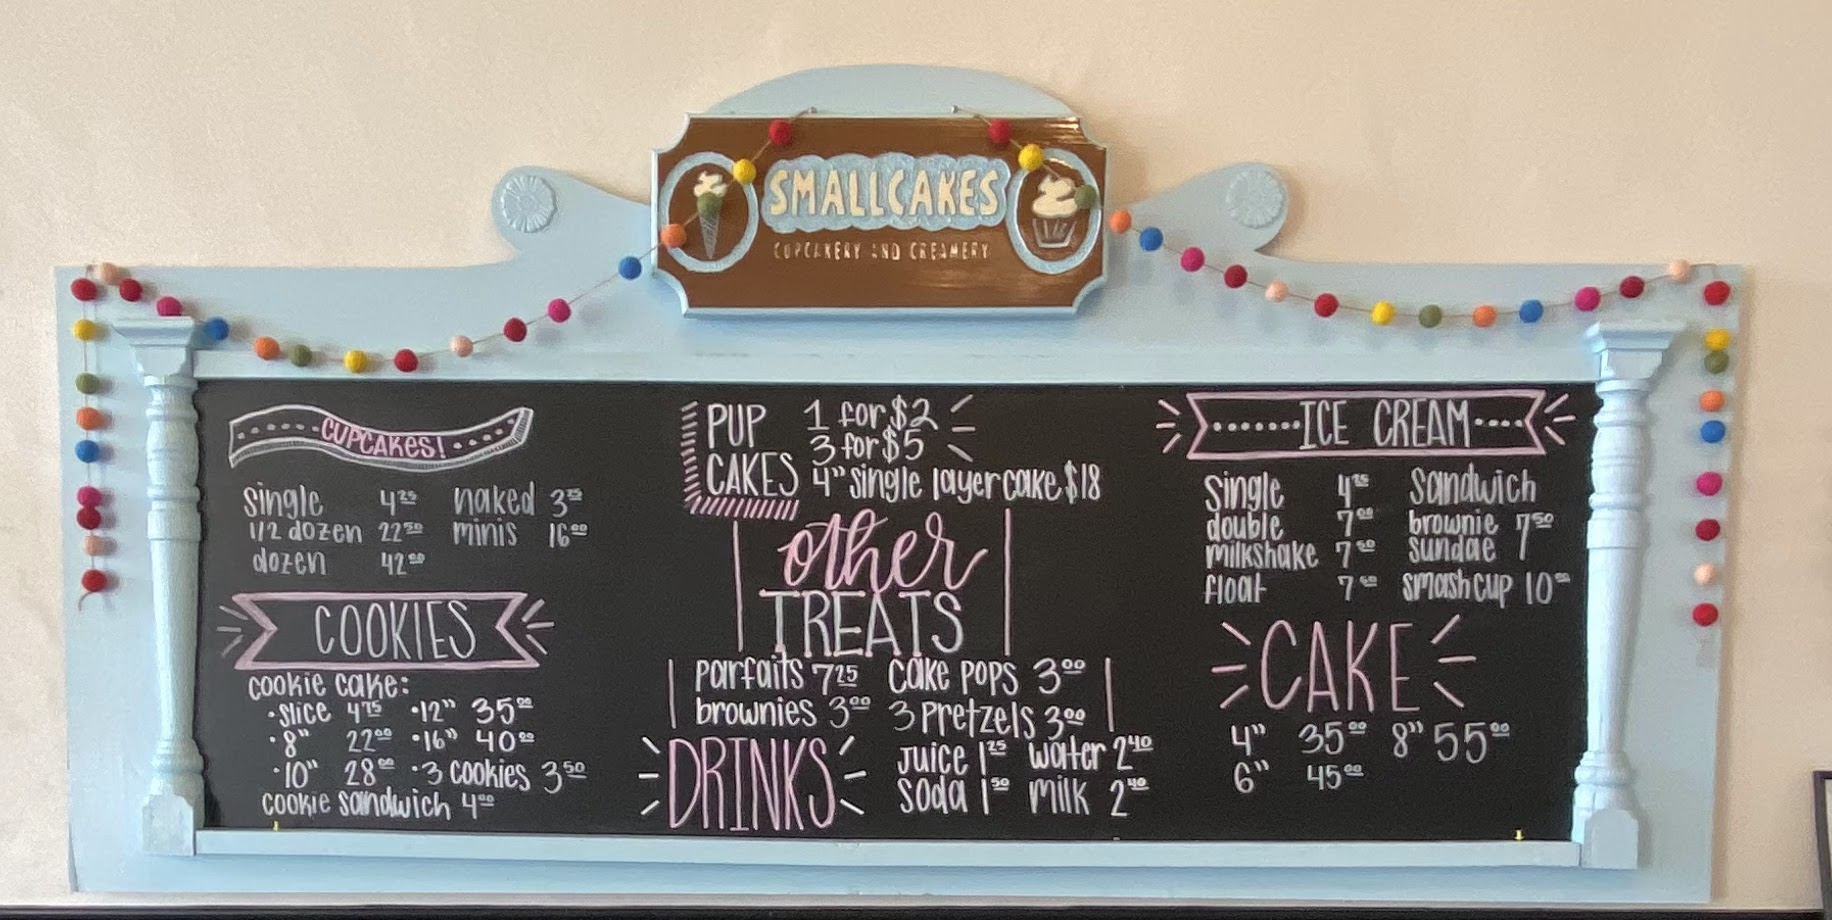 SMALLCAKES
CUPCAKERY AND CREAMERY
CUPCAKES!
single 4 25 naked 3 75
1/2 dozen 22 50 minis 16 00
dozen 42 00
COOKIES
cookie cake:
•slice 4 75 •12" 35 00
•8" 22 00 •16" 40 00
•10" 28 00 •3 cookies 3 50
cookie sandwich 4 00
PUP CAKES
1 for $2
3 for $5
4" single layer cake $18
other
TREATS
parfaits 7 25 cake pops 3 00
brownies 3 00 3 pretzels 3 00
DRINKS
juice 1 25 water 2 40
soda 1 50 milk 2 40
ICE CREAM
single 4 sandwich
double 7 00 brownie 7 50
milkshake 7 50 sundae
float 7 smash cup 10 00
CAKE
4" 35 00 8" 55 00
6" 45 00